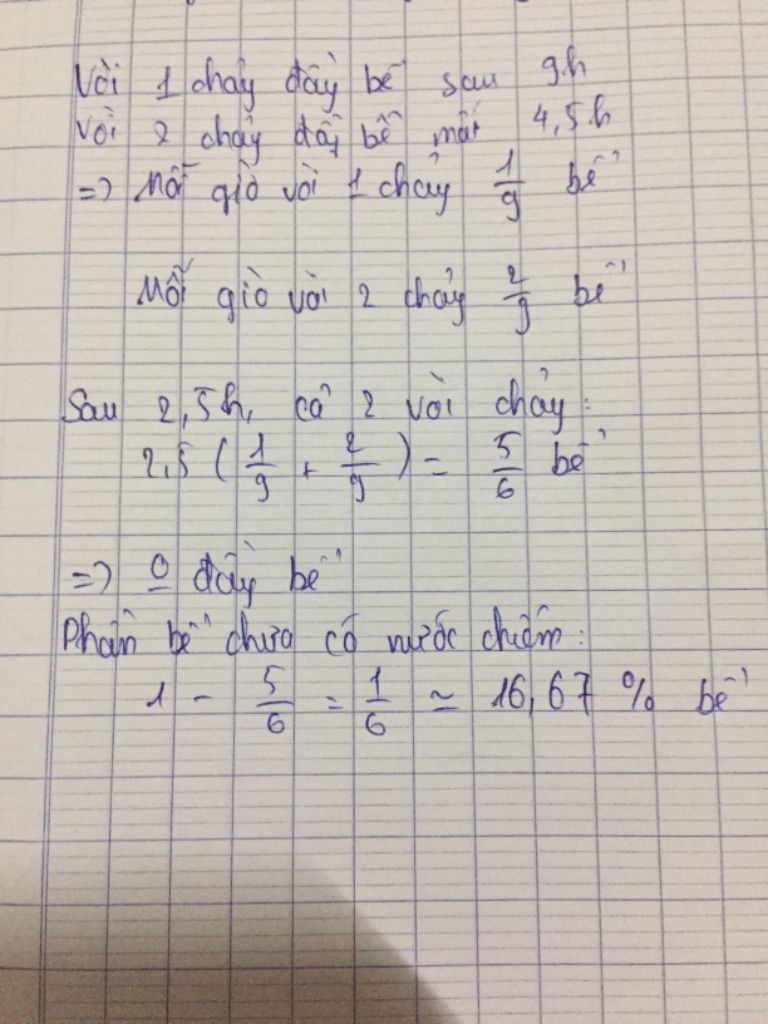 Vòi 1 chảy đầy bể sau 9h
Vòi 2 chảy đầy bể mất 4,5h
=> Mỗi giờ vòi 1 chảy 1/9 bể
Mỗi giờ vòi 2 chảy 2/9 bể
Sau 2,5h, cả 2 vòi chảy:
2,5 ( 1/9 + 2/9 ) = 5/6 bể
=> 0 đầy bể
Phần bể chưa có nước chiếm:
1 - 5/6 = 1/6 ≃ 16,67 % bể